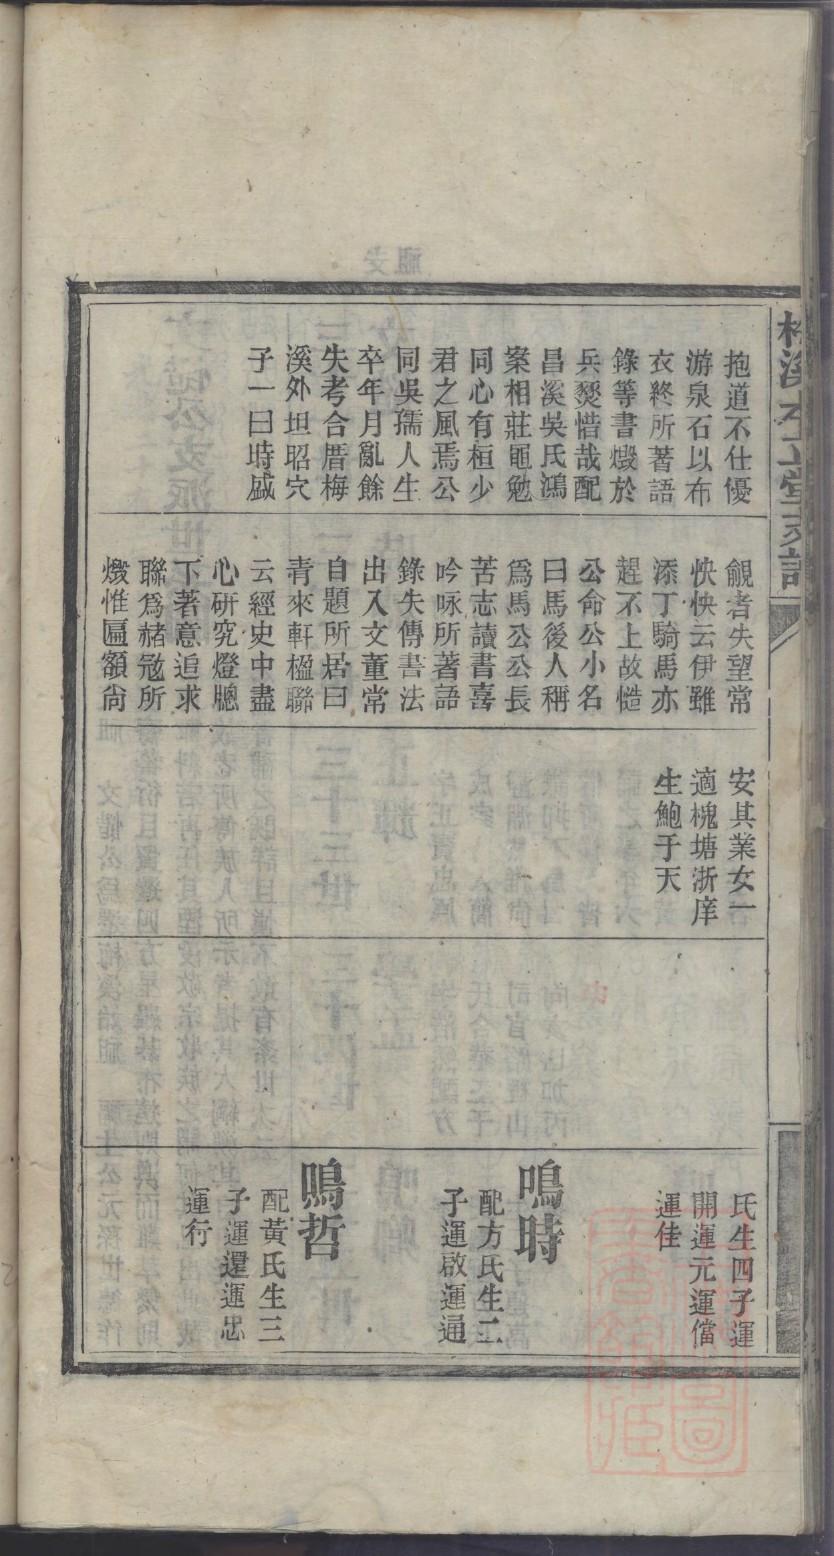 抱道不仕優
游泉石以布
衣終所著語
錄等書燬於
兵燹惜哉配
昌溪吳氏鴻
案相莊黽勉
同心有桓少
君之風焉公
同吳孺人生
卒年月亂餘
失考合厝梅
溪外坦昭穴
子一曰時晟
覦者失望常
怏怏云伊雖
添丁騎馬亦
趕不上故愭
公命公小名
曰馬後人稱
爲馬公公長
苦志讀書喜
吟咏所著語
錄失傳書法
出入文董常
自題所居曰
青來軒楹聯
云經史中盡
心研究燈牕
下著意追求
聯爲赭冦所
燬惟匾額尙
安其業女一
適槐塘浙庠
生鮑于天
氏生四子運
開運元運儅
運佳
鳴時
配方氏生二
子運啟運通
鳴哲
配黃氏生三
子運還運忠
運行